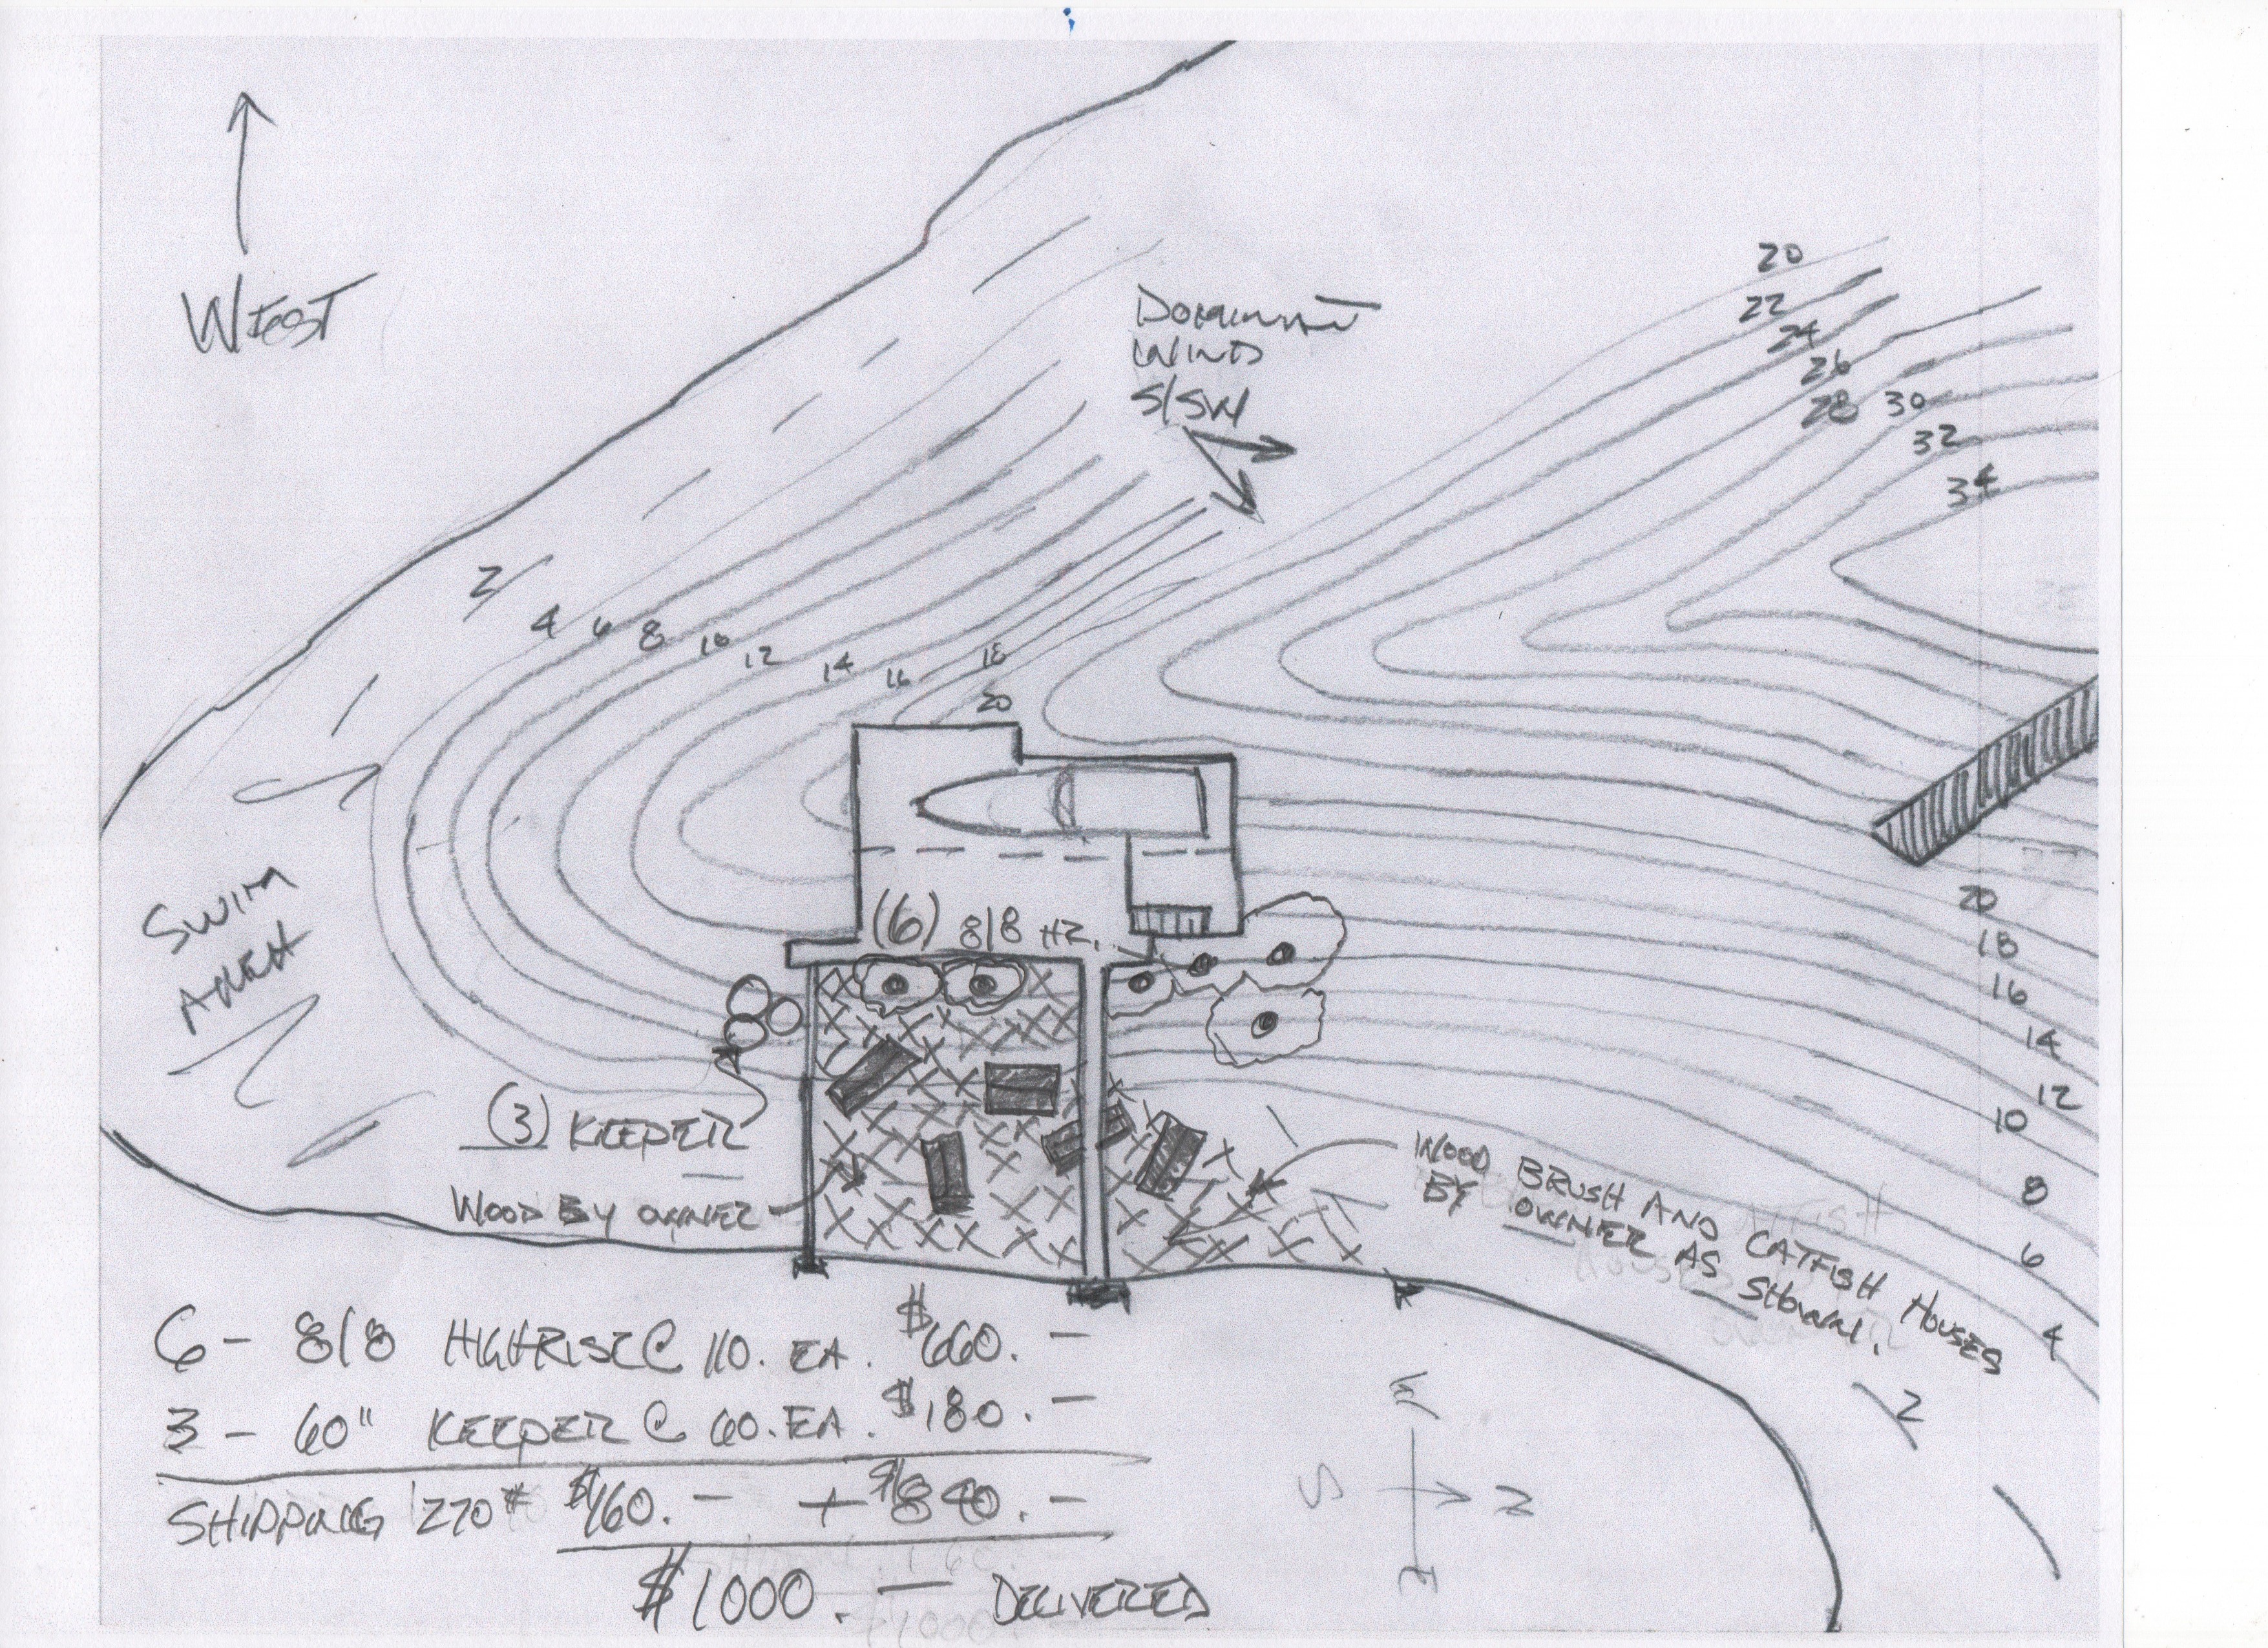 WEST
DOMINANT
WIND
S/SW
20
22
24
26
28
30
32
34
2
4
6
8
10
12
14
16
18
20
SWIM
AREA
(6) 8/8 HR.
(3) KEEPER
WOOD BY OWNER
WOOD BRUSH AND CATFISH HOUSES
BY OWNER AS SHOWN.
20
18
16
14
12
10
8
6
4
2
6 - 8/8 HIGHRISE @ 110. EA. $660. -
3 - 60" KEEPER @ 60. EA. $180. -
SHIPPING 270# $160. - + $840. -
$1000. - DELIVERED
W
S
N
E